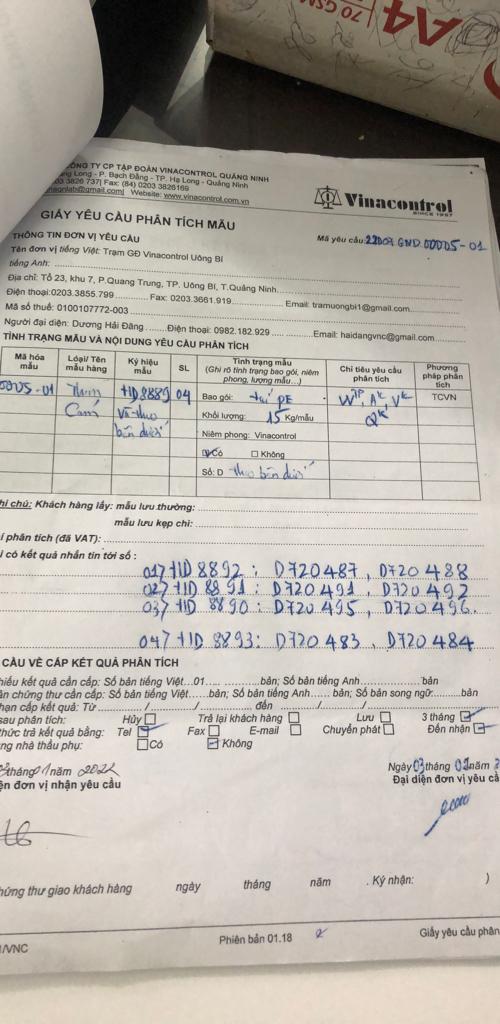 70 GSM
A4
ÔNG TY CP TẬP ĐOÀN VINACONTROL QUẢNG NINH
Long - P. Bạch Đằng - TP. Hạ Long - Quảng Ninh
03 3826 737| Fax: (84) 0203 3826169
@gmail.com| Website: www.vinacontrol.com.vn
Vinacontrol
SINCE 1957
GIẤY YÊU CẦU PHÂN TÍCH MẪU
Mã yêu cầu: 22D01.GND.00005-01
THÔNG TIN ĐƠN VỊ YÊU CẦU
Tên đơn vị tiếng Việt: Trạm GĐ Vinacontrol Uông Bí
tiếng Anh:
Địa chỉ: Tổ 23, khu 7, P.Quang Trung, TP. Uông Bí, T.Quảng Ninh
Điện thoại:0203.3855.799 Fax: 0203.3661.919 Email: tramuongbi1@gmail.com
Mã số thuế: 0100107772-003
Người đại diện: Dương Hải Đăng Điện thoại: 0982.182.929 Email: haidangvnc@gmail.com
TÌNH TRẠNG MẪU VÀ NỘI DUNG YÊU CẦU PHÂN TÍCH
Mã hóa mẫu Loại/ Tên mẫu hàng Ký hiệu mẫu SL Tình trạng mẫu (Ghi rõ tình trạng bao gói, niêm phong, lượng mẫu...) Chỉ tiêu yêu cầu phân tích Phương pháp phân tích
0005-01 Than HD8889 04 Bao gói: túi PE W, A, V TCVN
Cám và theo Khối lượng: 15 Kg/mẫu Q
bên dưới Niêm phong: Vinacontrol
Có Không
Số: D theo bên dưới
hi chú: Khách hàng lấy: mẫu lưu thường:
mẫu lưu kẹp chì:
í phân tích (đã VAT):
i có kết quả nhắn tin tới số :
01/ HD 8892 : D720487 , D720488
02/ HD 8891 : D720491 , D720492
03/ HD 8890 : D720495 , D720496
04/ HD 8893 : D720483 , D720484
CẦU VỀ CẤP KẾT QUẢ PHÂN TÍCH
hiếu kết quả cần cấp: Số bản tiếng Việt...01... bản; Số bản tiếng Anh bản
ần chứng thư cần cấp: Số bản tiếng Việt......bản; Số bản tiếng Anh ..... bản; Số bản song ngữ bản
hạn cấp kết quả: Từ / / đến / /
sau phân tích: Hủy Trả lại khách hàng Lưu 3 tháng
thức trả kết quả bằng: Tel Fax E-mail Chuyển phát Đến nhận
ng nhà thầu phụ: Có Không
3 tháng 01 năm 2022 Ngày 03 tháng 01 năm
ện đơn vị nhận yêu cầu Đại diện đơn vị yêu cầ
hứng thư giao khách hàng ngày tháng năm . Ký nhận: )
/VNC Phiên bản 01.18 Giấy yêu cầu phân